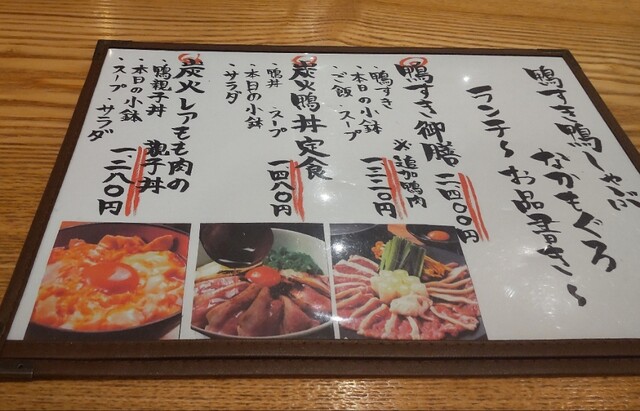 鴨すき鴨しゃぶ
なかもぐろ
ランチ〜お品書き〜
鴨すき御膳 二四〇〇円
・鴨すき ※追加鴨肉
・本日の小鉢 一三二〇円
・ご飯・スープ
炭火鴨丼定食
・鴨丼 ・スープ
・本日の小鉢 一四八〇円
・サラダ
炭火レアもも肉の
親子丼
・鴨親子丼 一二八〇円
・本日の小鉢
・スープ・サラダ